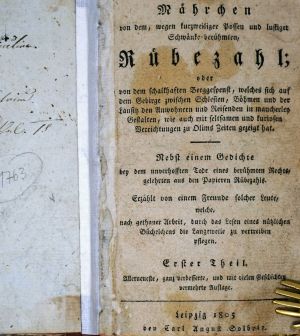 1763
Mährchen
von dem, wegen kurzweiliger Possen und lustiger
Schwänke berühmten,
Rübezahl;
oder
von dem schalkhaften Berggespenst, welches sich auf
dem Gebirge zwischen Schlesien, Böhmen und der
Lausitz den Anwohnern und Reisenden in mancherley
Gestalten, wie auch mit seltsamen und kuriosen
Verrichtungen zu Olims Zeiten gezeigt hat.
Nebst einem Gedichte
bey dem unverhofften Tode eines berühmten Rechts-
gelehrten aus den Papieren Rübezahls.
Erzählt von einem Freunde solcher Leute,
welche,
nach gethaner Arbeit, durch das Lesen eines nützlichen
Büchelchens die Langeweile zu vertreiben
pflegen.
Erster Theil.
Allerneueste, ganz verbesserte, und mit vielen Geschichten
vermehrte Auflage.
Leipzig 1805
bey Carl August Solbrig